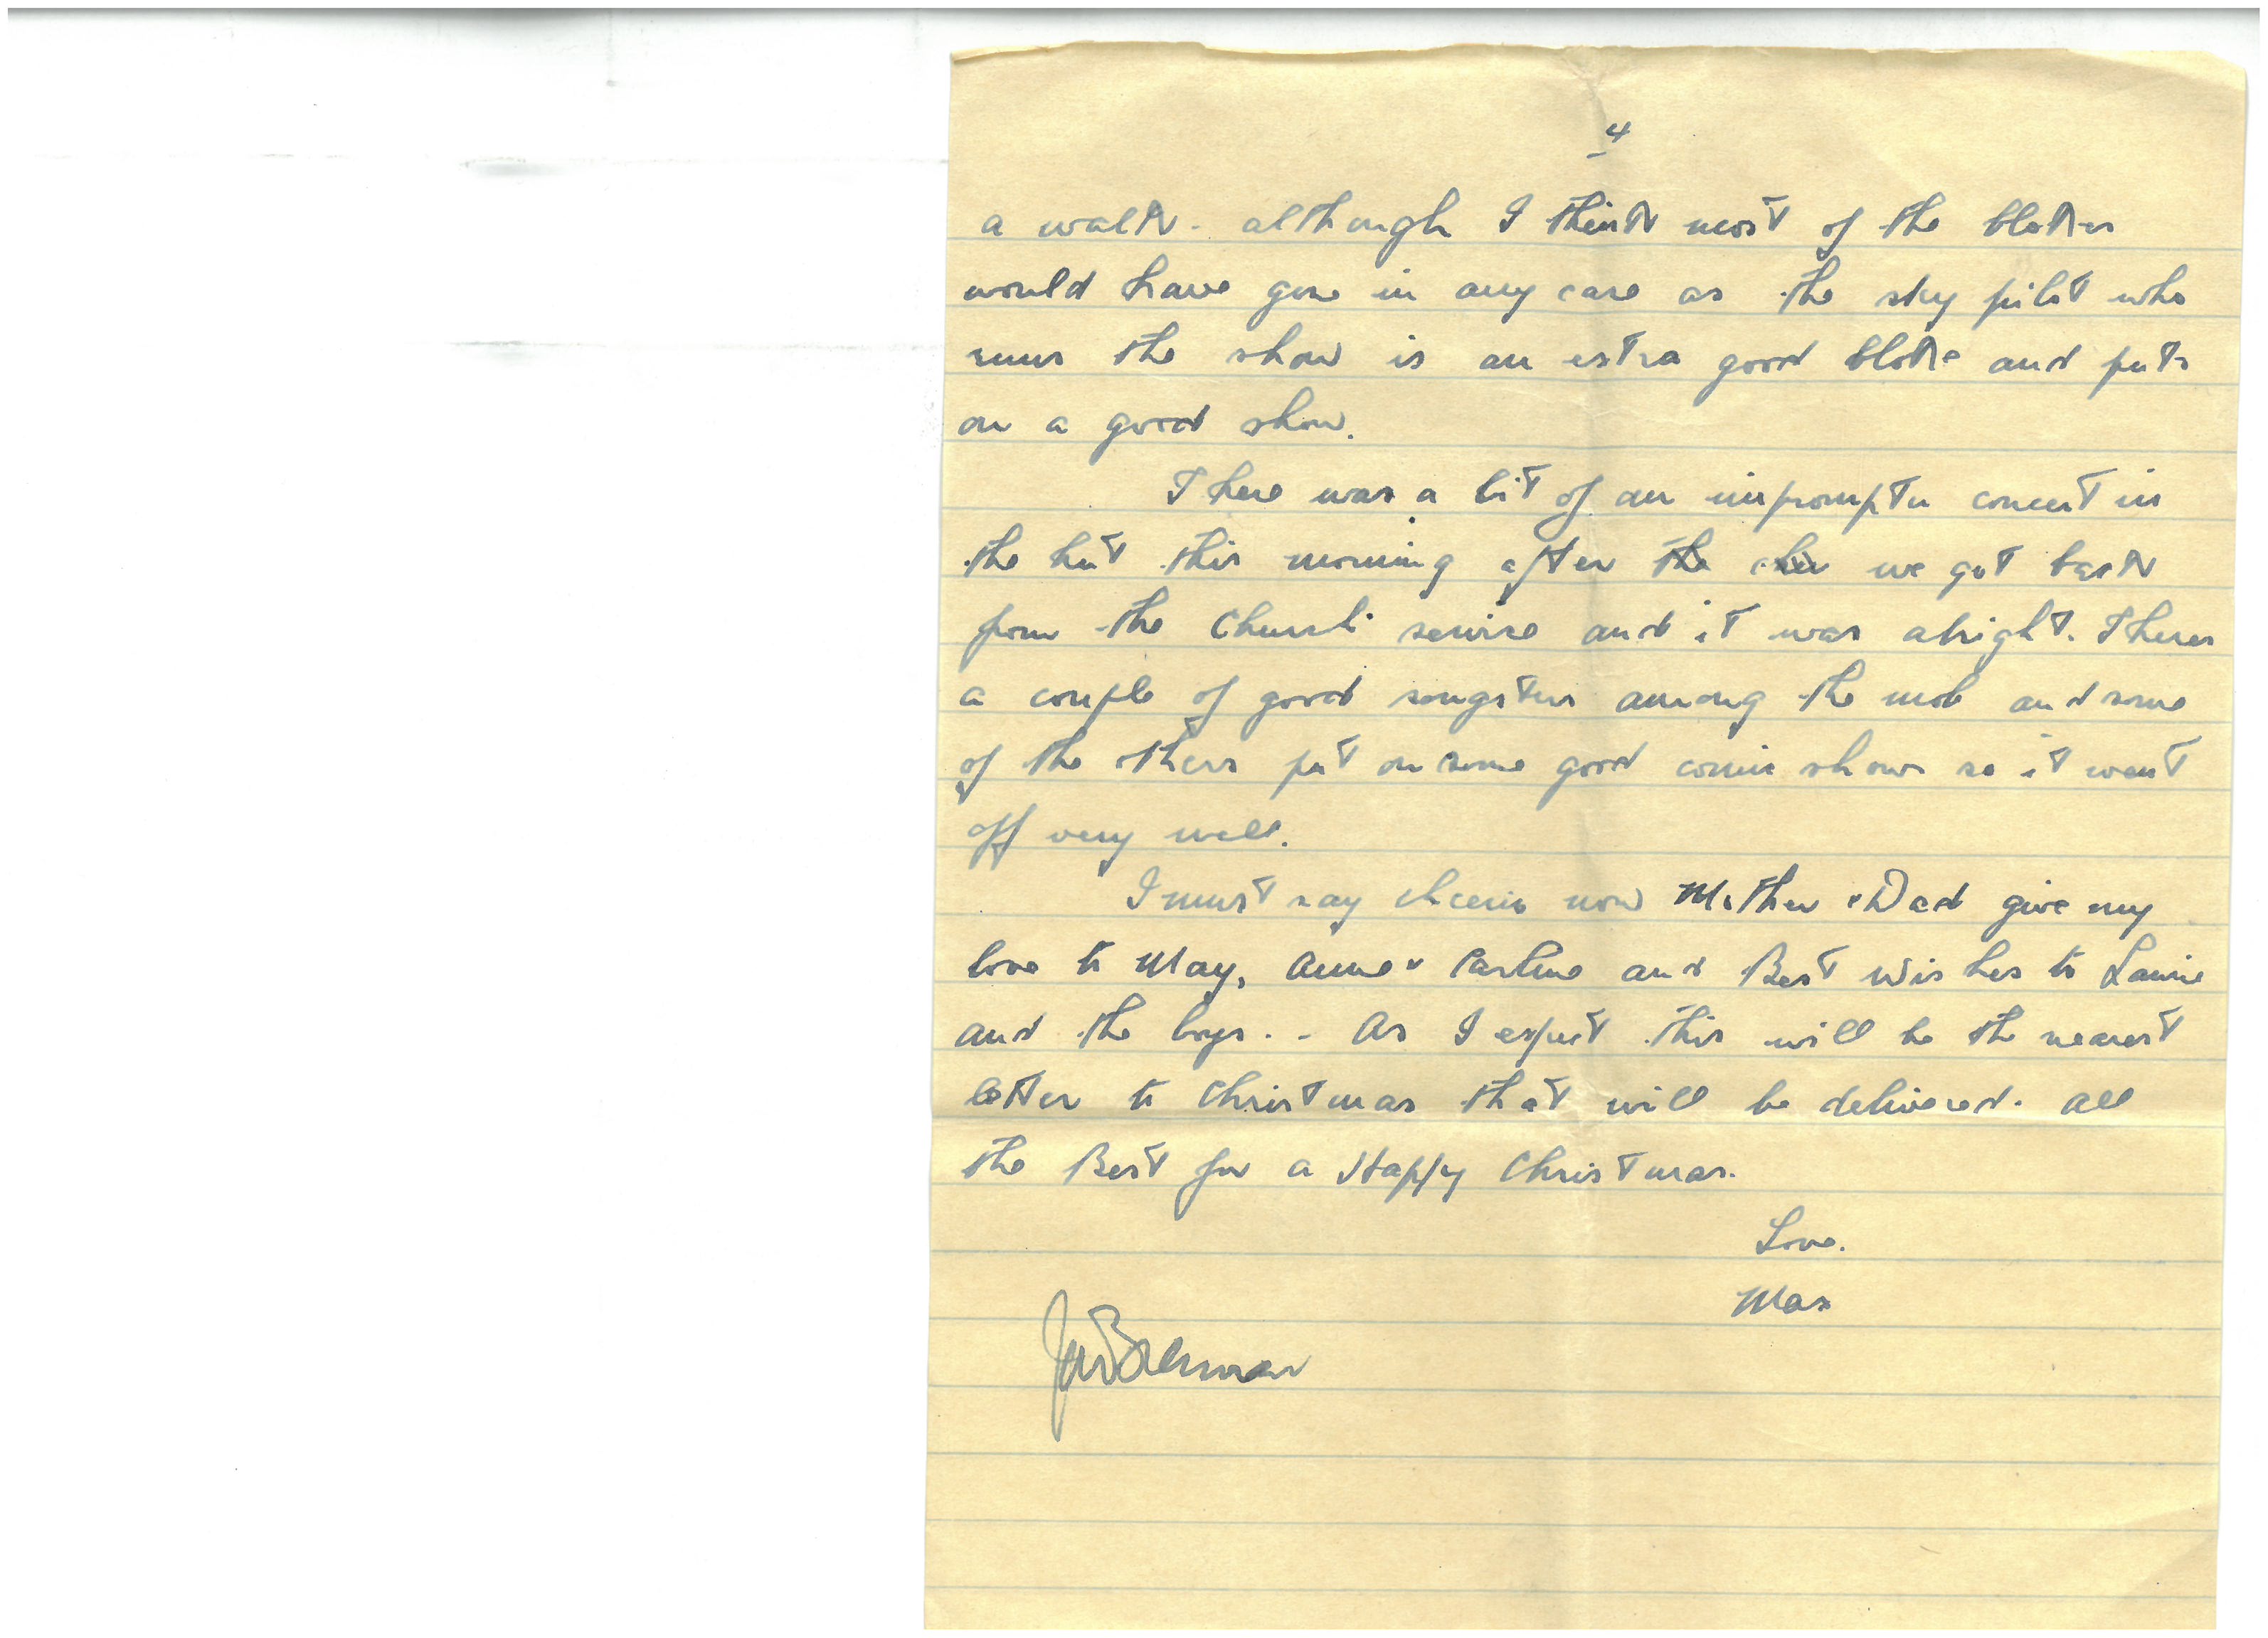 4
a walk. although I think most of the blokes
would have gone in any case as the sky pilot who
runs the show is an extra good bloke and puts
on a good show.
There was a bit of an impromptu concert in
the hut this morning after the we got back
from the Church service and it was alright. Theres
a couple of good songsters among the mob and some
of the others put on some good comic shows so it went
off very well.
I must say cheerio now Mother & Dad give my
love to May, Anne & and Best Wishes to Laurie
and the boys. - As I expect this will be the nearest
letter to Christmas that will be delivered. All
the Best for a Happy Christmas.
Love.
Max